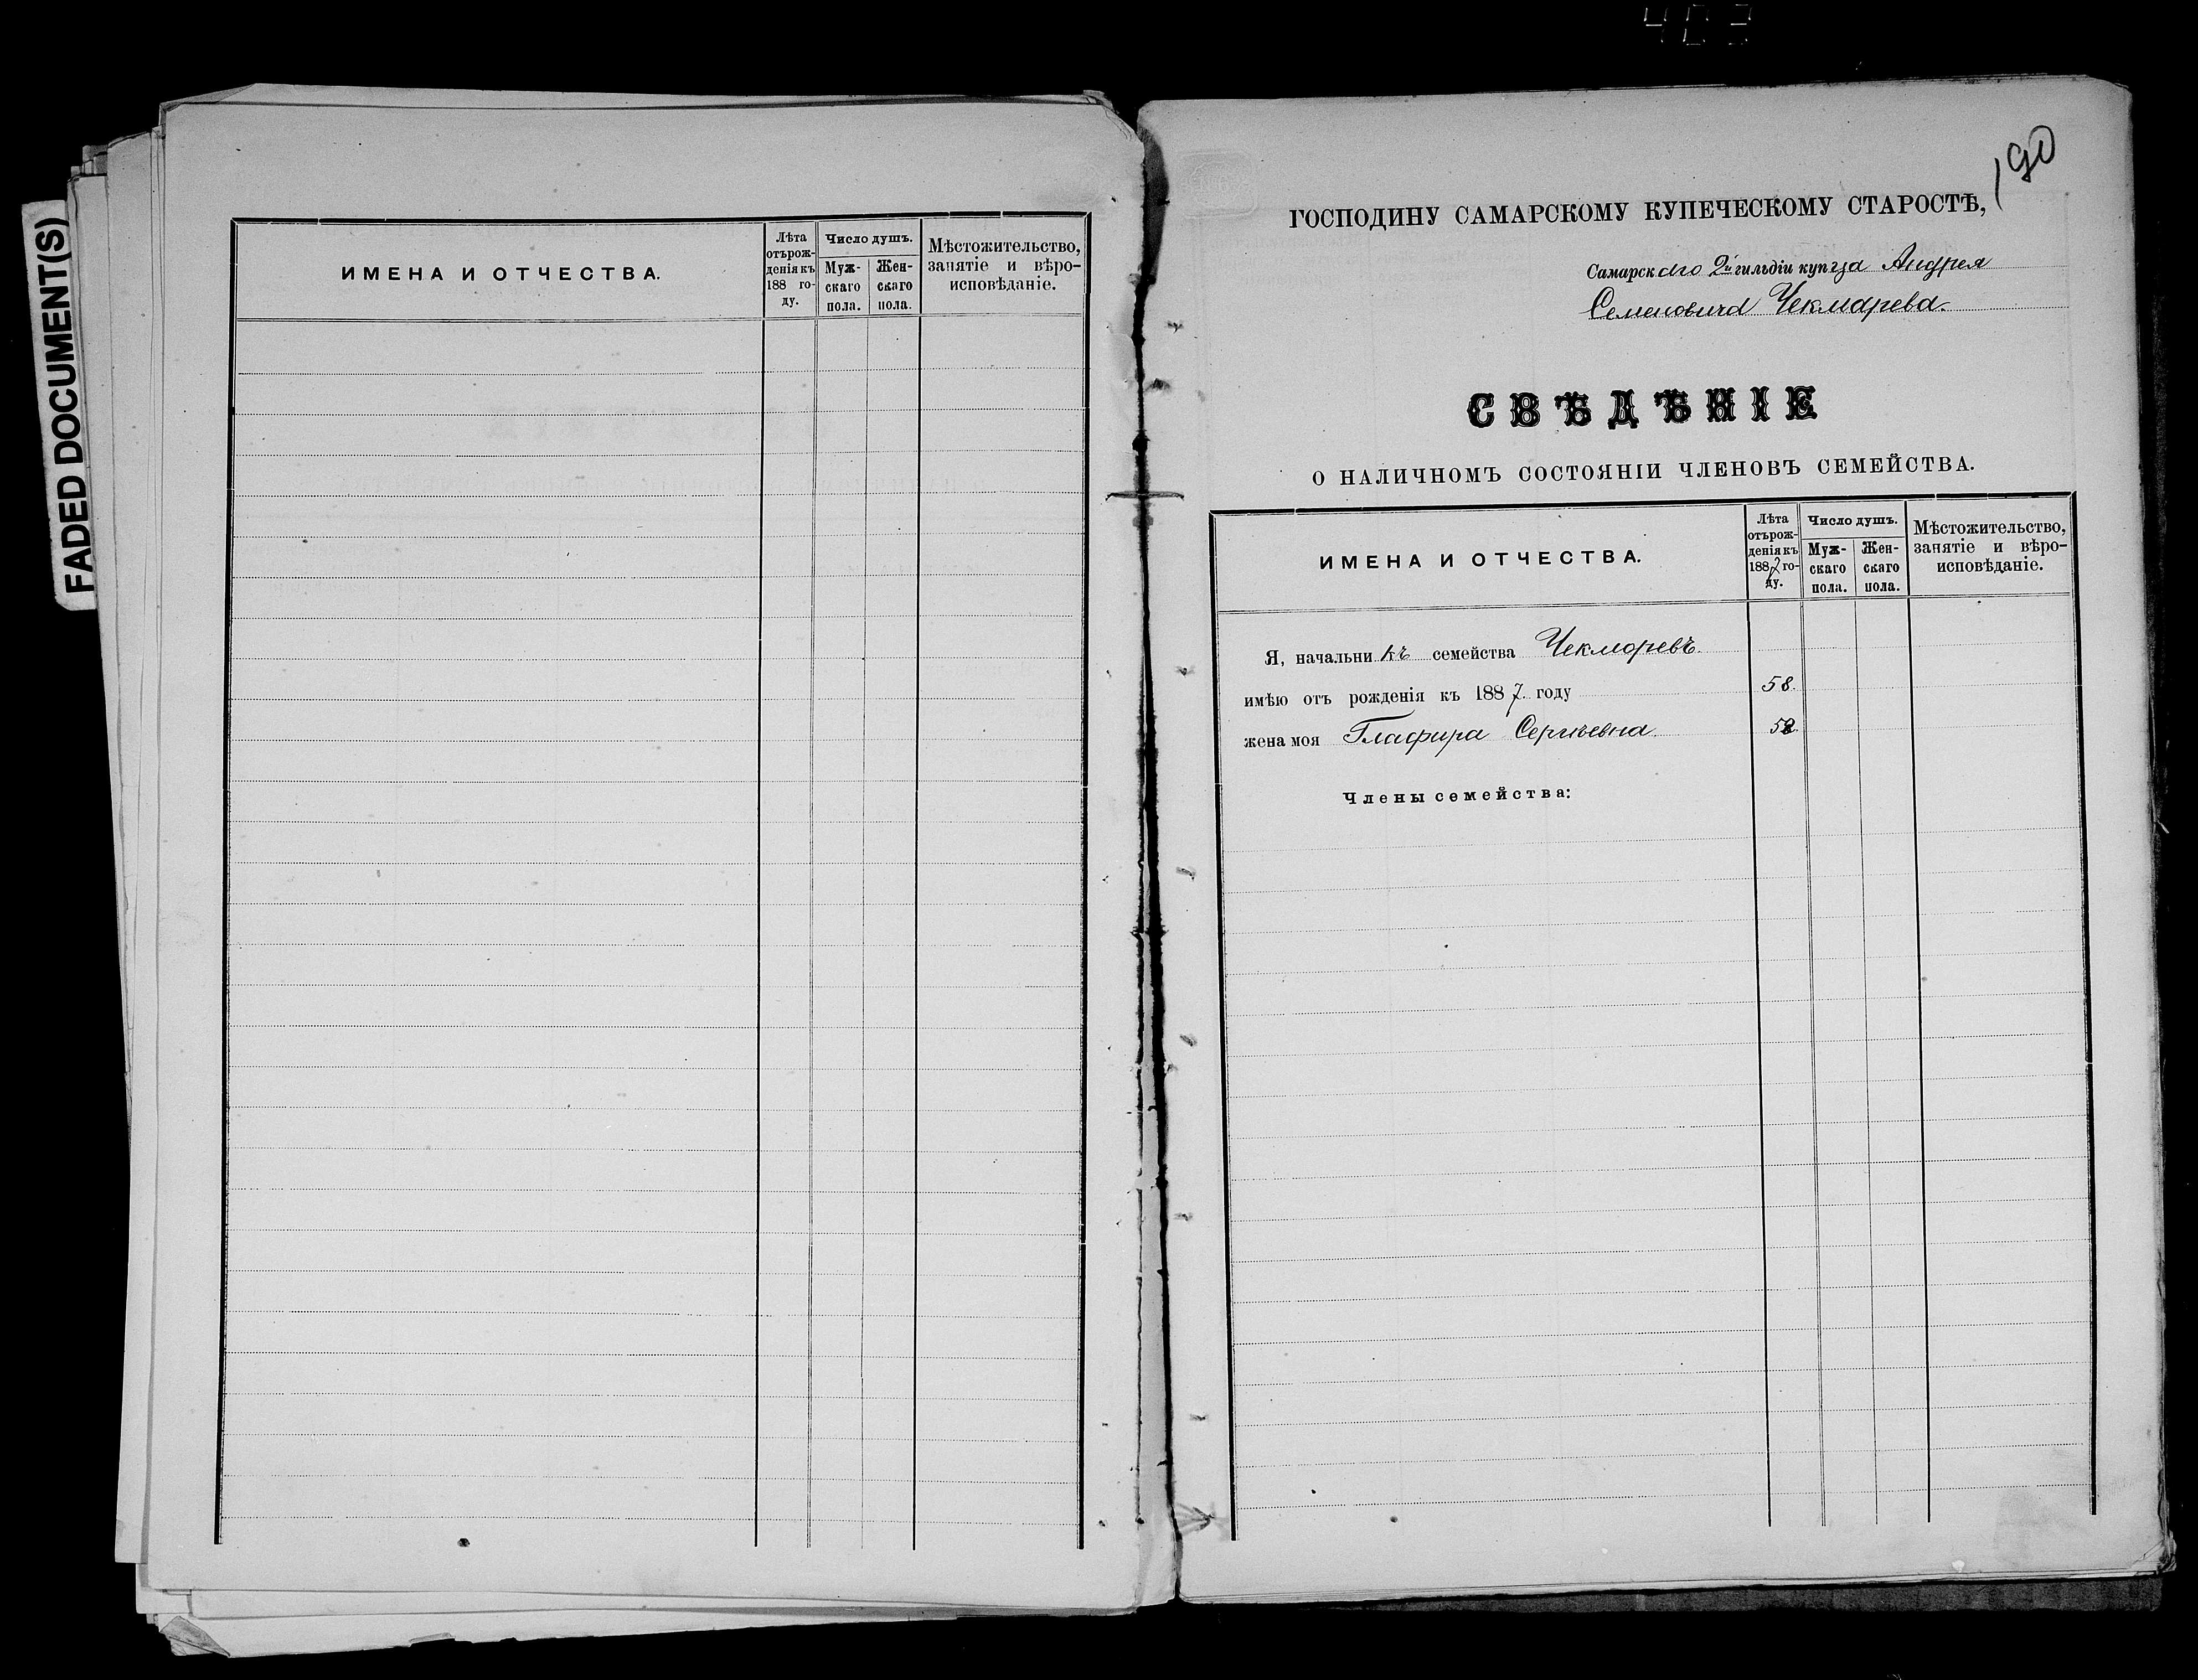 403
FADED DOCUMENT(S)
ИМЕНА И ОТЧЕСТВА.
Лѣта
отъ рож-
денія къ
188 го-
ду.
Число душъ.
Муж-
скаго
пола.
Жен-
скаго
пола.
Мѣстожительство,
занятіе и вѣро-
исповѣданіе.
190
ГОСПОДИНУ САМАРСКОМУ КУПЕЧЕСКОМУ СТАРОСТѢ,
Самарскаго 2й гильдіи купца Андрея
Семеновича Чекмарева.
СВѢДѢНІЕ
О НАЛИЧНОМЪ СОСТОЯНІИ ЧЛЕНОВЪ СЕМЕЙСТВА.
ИМЕНА И ОТЧЕСТВА.
Лѣта
отъ рож-
денія къ
1887 го-
ду.
Число душъ.
Муж-
скаго
пола.
Жен-
скаго
пола.
Мѣстожительство,
занятіе и вѣро-
исповѣданіе.
Я, начальникъ семейства Чекмаревъ.
имѣю отъ рожденія къ 1887. году 58.
жена моя Глафира Сергѣевна. 52.
Члены семейства: